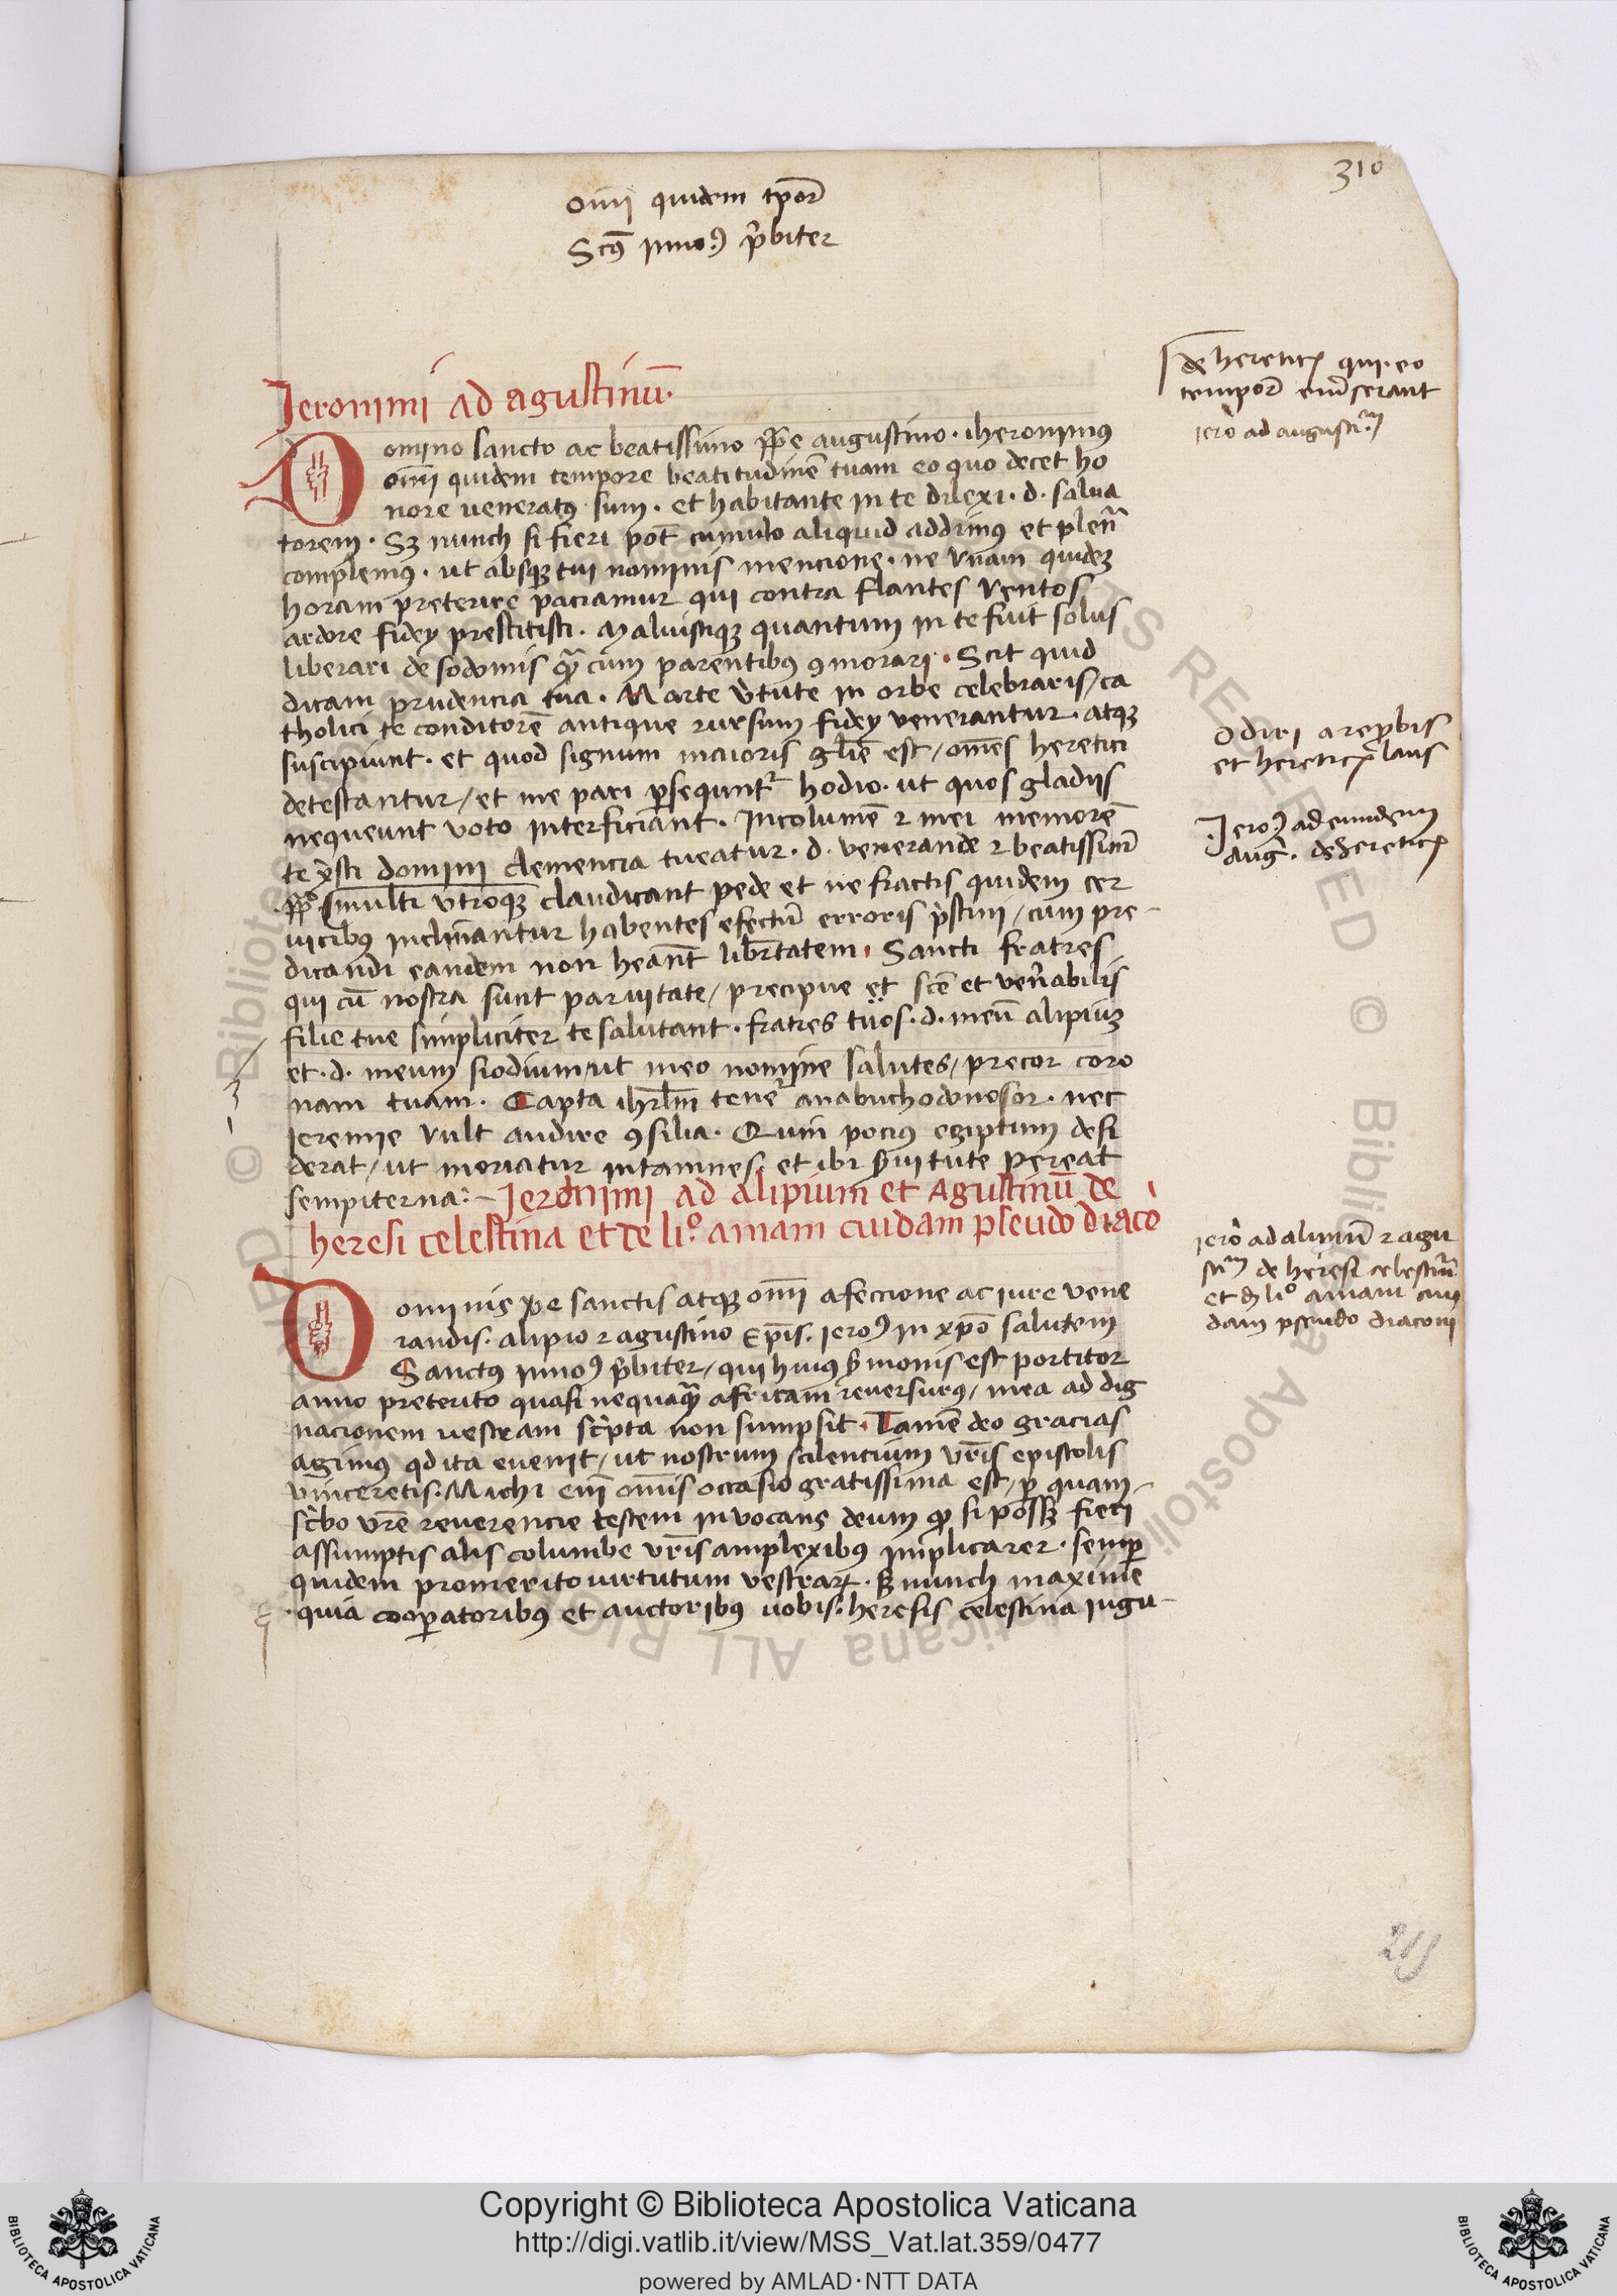 310
om̄i quidem tp̄or
Sc̄9 inno9 p̄rbiter
Jeronimi ad agustinū.
Domino sancto ac beatissimo pp̄e augustino. iheronimus
om̄i quidem tempore beatitudinē tuam eo quo decet ho
nore ueneratꝯ sum. et habitante in te dilexi. d. salua
torem. Sꝫ nunch si fieri pōt cumulo aliquid addimꝯ et plen̄a
complemꝯ. ut absqꝫ tui nominis mencione. ne vnam quidēꝫ
horam preterire paciamur qui contra flantes ventos
ardore fidey prestitisti. Maluistiqꝫ quantum in te fuit solus
liberari de sodomis qͣ cum parentibꝯ ꝯmorari. Scit quid
dicam prudencia tua. Marte v̓tute in orbe celebraris/ca
tholici te conditorē antique rursum fidey venerantur. atqꝫ
suscipiunt. et quod signum maioris gl̄ie est/om̄es heretici
detestantur/et me pari ꝑsequntr̄ hodio. ut quos gladiis
nequeunt voto interficiant. Incolumē ⁊ mei memorē
te xp̄sti domini clemencia tueatur. d. venerande ⁊ beatissime
pp̄a multi vtroqꝫ claudicant pede et ne fractis quidem cer
uicibꝯ inclinantur habentes efectū erroris pͥstini/cum pre-
dicandi eandem non heānt lib̄rtatem. Sancti fratres
qui cū nostra sunt paruitate/precipue et sc̄e et ven̄abilis
filie tue simpliciter te salutant. fratres tuos. d. meū alipiuꝫ
et. d. meum siodium/ut meo nomine salutes/precor coro
nam tuam. Capta ihrl̄m tener̄ anabuchodonosor. nec
Jeremie vult audire ꝯsilia. Quin pociꝯ egiptum desi
derat/ut moriatur in tamnes. et ibi s̄uitute pereat
sempiterna:- Jeronimi ad alipium et Agustinū de
heresi celestina et de li.º amam cuidam pseudo diaco
Dominis v̄e sanctis atqꝫ om̄i afeccione ac iure vene
randis. alipio ⁊ agustino Ep̄is. iero9 in xp̄o salutem
Sanctus inno9 p̄rbiter/qui huius s̄monis est portitor
anno preterito quasi nequaqͣ africam reuersurꝯ/mea ad dig
nacionem uestram sc̓pta non sumpsit. Tamē deo gracias
agimꝯ qd ita euenit/ut nostrum scilencium vr̄is epistolis
vinceretis. Michi eni om̄is occasio gratissima est/ꝑ quam-
sc̓bo vr̄e reuerencie testem inuocans deum ꝙ si possꝫ fieri
assumptis alis columbe vr̄is amplexibꝯ implicarer. semꝑ
quidem promerito uirtutum vestraꝝ. Sꝫ nunch maxime
quia cooꝑatoribꝯ et auctoribꝯ uobis. heresis celestina iugu-
de hereticꝭ qui eo
tempor̄ em̄serant
iero ad augusti.m
odiri a reꝓbis
et hereticꝭ laus
Jero9 ad eumdem
aug. de hereticꝭ
iero ad alimū ⁊ agu
stim de heresi celestina
et de li.º amam cui
dam pseudo diaconi
Copyright © Biblioteca Apostolica Vaticana
http://digi.vatlib.it/view/MSS_Vat.lat.359/0477
powered by AMLAD·NTT DATA
BIBLIOTECA APOSTOLICA VATICANA
BIBLIOTECA APOSTOLICA VATICANA